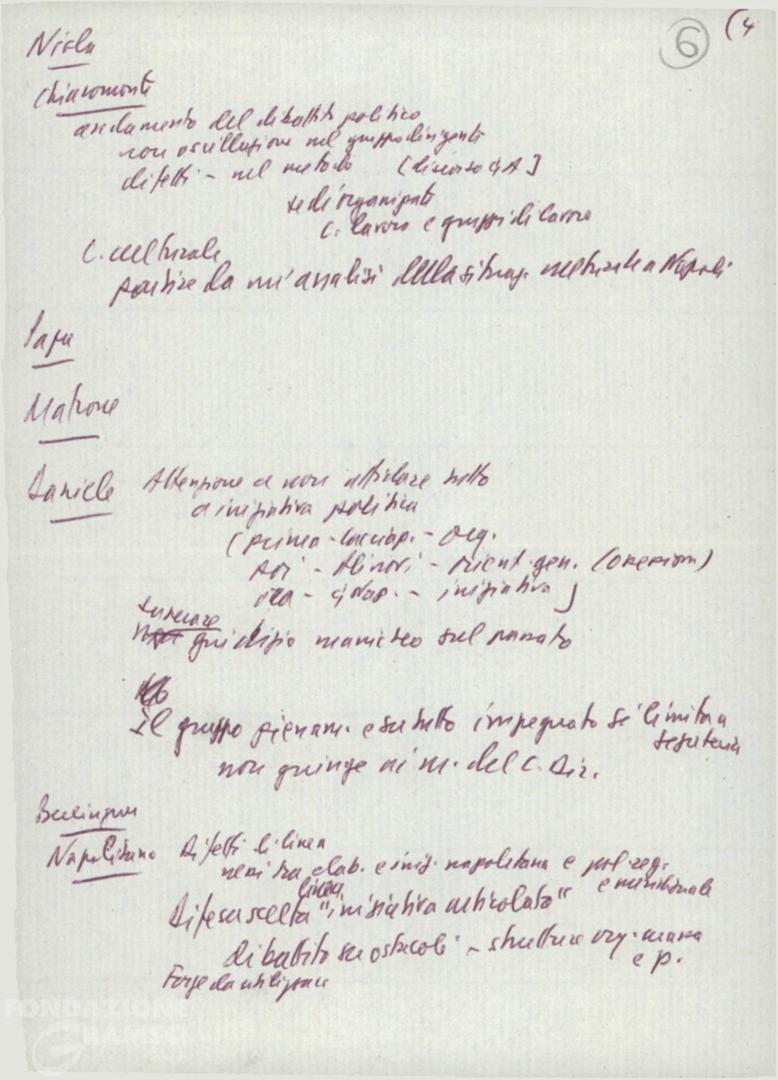 6 (4
Nicla
Chiaromonte
andamento del dibattito politico
non oscillazione nel gruppo dirigente
difetti - nel metodo [discorso di A]
sedi organizzate
C. lavoro e gruppi di lavoro
C. culturale
partire da un'analisi della situaz. culturale a Napoli
Papa
Matrone
Daniele Attenzione a non affidare tutto
a iniziativa politica
(prima - Cacciap. - org.
poi - Alinovi - orient. gen.
ora - Geap. - iniziativa)
superare
giudizio manicheo sul passato
Il gruppo pienam. e su tutto impegnato si limita a
segreteria
non giunge ai m. del C. Dir.
Berlinguer
Napolitano Difetti di linea
nessi tra elab. e iniz. napoletana e pol. reg.
e meridionale
linea
Difesa scelta "iniziativa articolata"
dibattito su ostacoli - strutture org. massa
e p.
Forze da utilizzare
FONDAZIONE
GRAMSCI